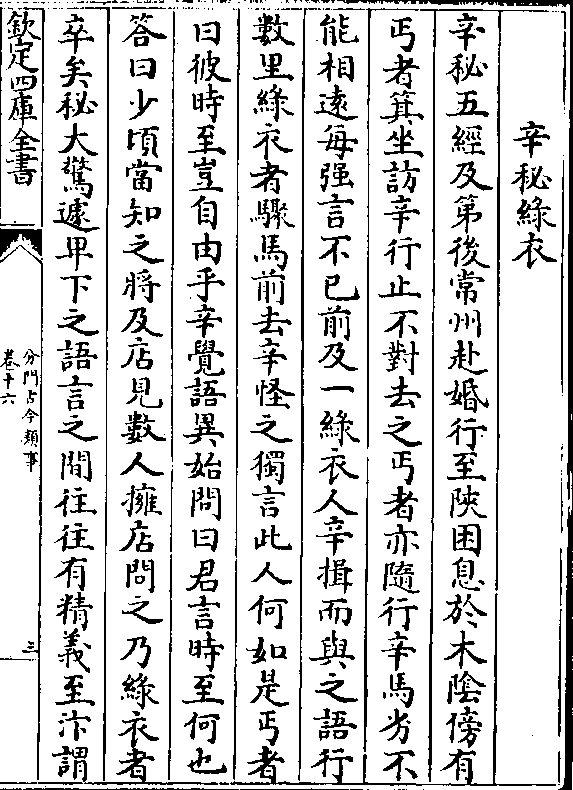 辛秘綠衣
辛秘五經及第後常州赴婚行至陜困息於木陰傍有
丐者箕坐訪辛行止不對去之丐者亦隨行辛馬劣不
能相遠每强言不已前及一綠衣人辛揖而與之語行
數里綠衣者驟馬前去辛怪之獨言此人何如是丐者
曰彼時至豈自由乎辛覺語異始問曰君言時至何也
答曰少頃當知之將及店見數人擁店問之乃綠衣者
卒矣秘大驚遽卑下之語言之間往往有精義至汴謂
欽定四庫全書
分門古今類事
卷十六
三